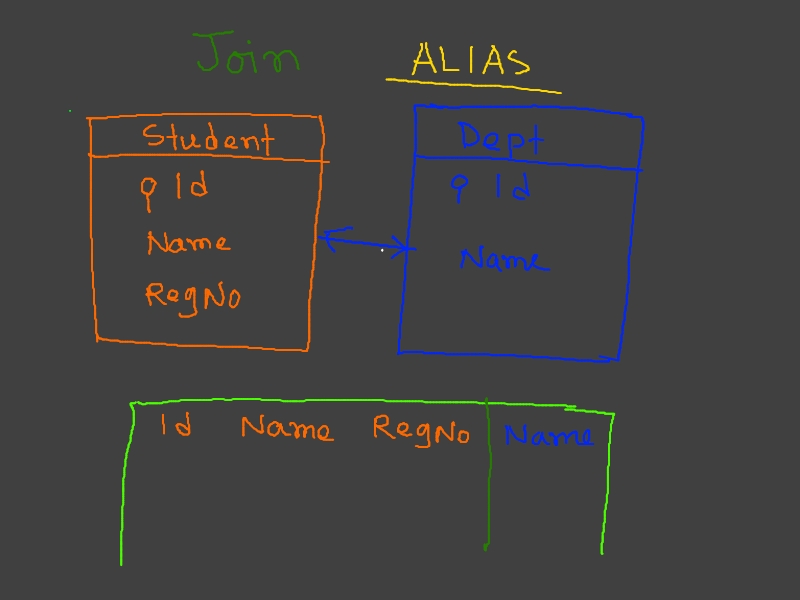 Join ALIAS
Student
Id
Name
RegNo
Dept
Id
Name
Id Name RegNo Name